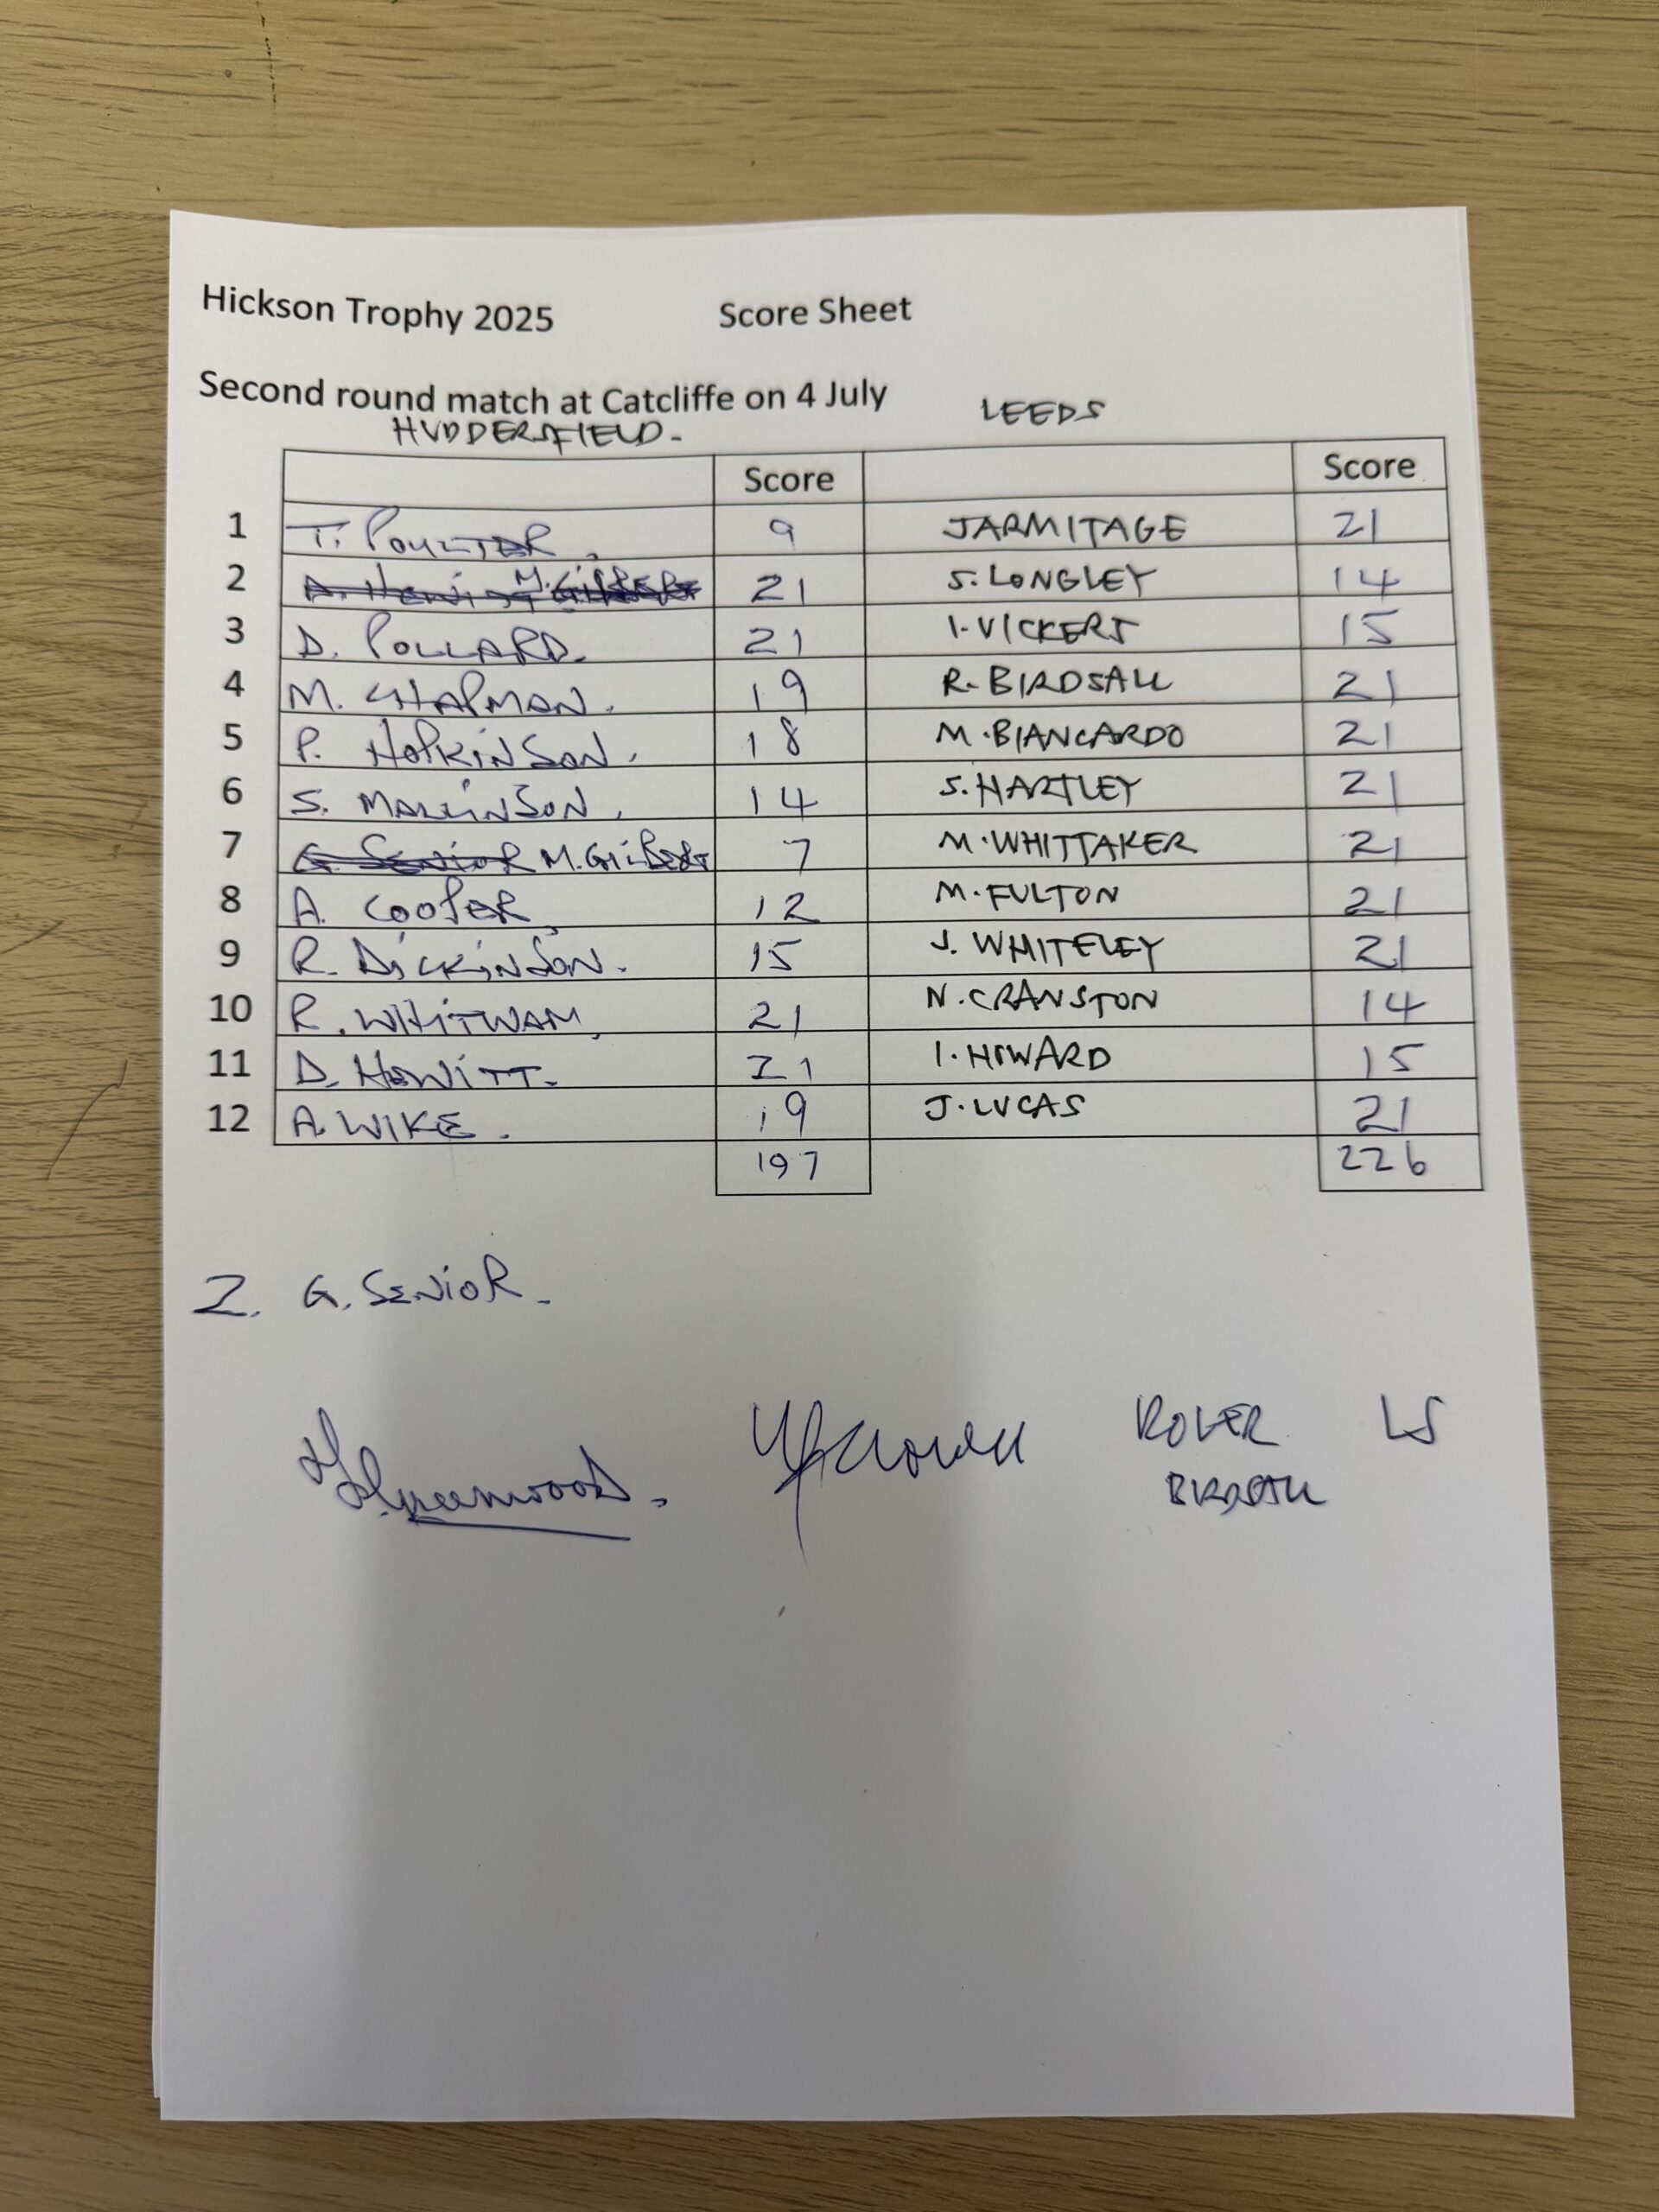 Hickson Trophy 2025 Score Sheet
Second round match at Catcliffe on 4 July
HUDDERSFIELD - LEEDS
Score Score
1 T. POULTER 9 J ARMITAGE 21
2 M. GILBERT 21 S. LONGLEY 14
3 D. POLLARD. 21 I. VICKERS 15
4 M. CHAPMAN. 19 R. BIRDSALL 21
5 P. HOPKINSON. 18 M. BIANCARDO 21
6 S. MALLINSON. 14 S. HARTLEY 21
7 G. SENIOR M. GILBERT 7 M. WHITTAKER 21
8 A. COOPER 12 M. FULTON 21
9 R. DICKINSON. 15 J. WHITELEY 21
10 R. WHITWAM 21 N. CRANSTON 14
11 D. HEWITT. 21 I. HOWARD 15
12 A. WIKE. 19 J. LUCAS 21
197 226
2. G. SENIOR.
Greenwood.
LS